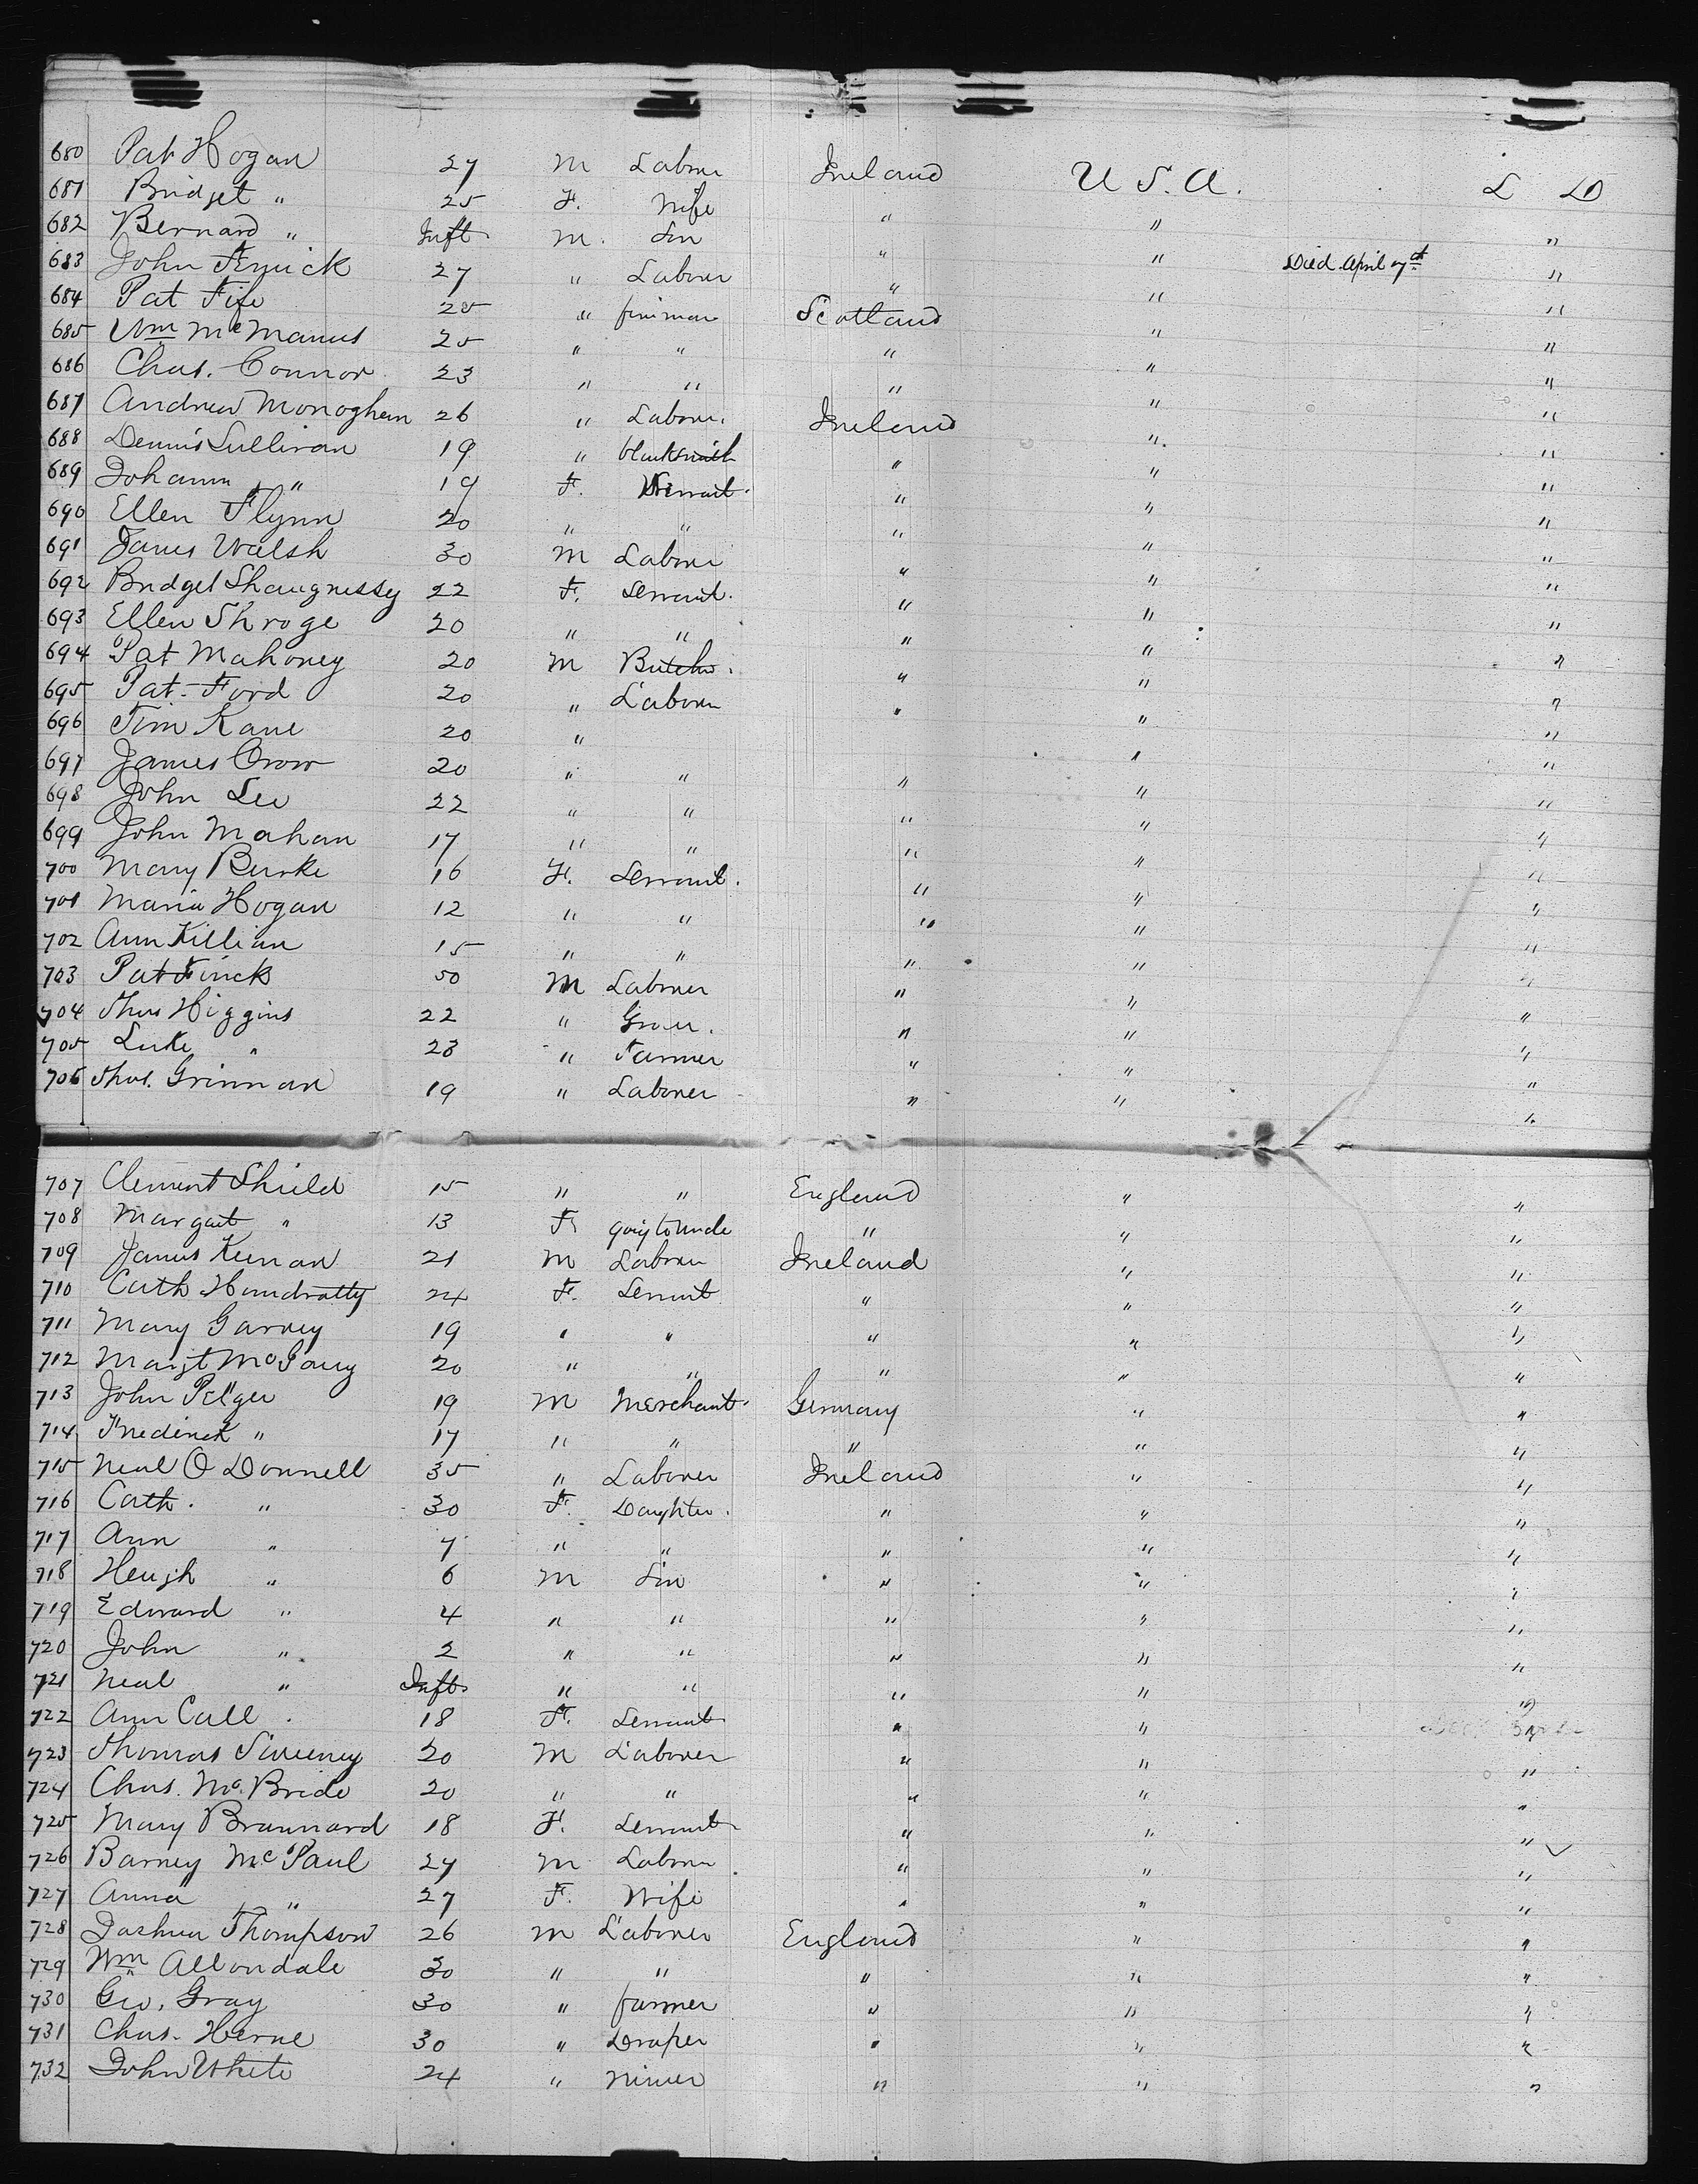 680 Pat Hogan 27 M Labour Ireland U.S.A. L D
681 Bridget " 25 F. Wife " "
682 Bernard " Inft M. Son " " Died April 7th "
683 John 27 " Laborer " " "
684 Pat Fife 25 " fireman Scotland " "
685 Wm McManus 25 " " " " "
686 Chas. Connor 23 " " " " "
687 Andrew Monoghan 26 " Labour. Ireland " "
688 Dennis Sullivan 19 " blacksmith " " "
689 Johann " 19 F. Servant. " " "
690 Ellen Flynn 20 " " " " "
691 James Walsh 30 M Labour " " "
692 Bridget Shaugnessy 22 F. Servant. " " "
693 Ellen Skroge 20 " " " " "
694 Pat Mahoney 20 M Butcher. " " "
695 Pat. Ford 20 " Laborer " " "
696 Tim Kane 20 " " "
697 James Crow 20 " " " " "
698 John Lee 22 " " " " "
699 John Mahan 17 " " " " "
700 Mary Burke 16 F. Servant. " " "
701 Maria Hogan 12 " " " " "
702 Ann Killian 15 " " " " "
703 Pat Finick 50 M Laborer " " "
704 Thos Higgins 22 " " " "
705 Luke " 23 " Farmer " " "
706 Thos. Grinnan 19 " Laborer " " "
707 Clement Shield 15 " " England " "
708 Margart " 13 F going to Uncle " " "
709 James Keenan 21 M Laborer Ireland " "
710 Cath Handratty 24 F. Servant " " "
711 Mary Garvey 19 " " " " "
712 Margt 20 " " " " "
713 John 19 M Merchant. Germany " "
714 Frederick " 17 " " " " "
715 Neal O Donnell 35 " Laborer Ireland " "
716 Cath. " 30 F. Daughter. " " "
717 Ann " 7 " " " " "
718 Heugh " 6 M Son " " "
719 Edward " 4 " " " " "
720 John " 2 " " " " "
721 Neal " Inft. " " " " "
722 Ann Call . 18 F. Servant " "
723 Thomas Sweeney 20 M Laborer " " "
724 Chas. McBride 20 " " " " "
725 Mary Brannard 18 F. Servant " " "
726 Barney McPaul 27 M Labour " " "
727 Anna " 27 F. Wife " " "
728 Joshua Thompson 26 M Laborer England " "
729 Wm Allondale 30 " " " " "
730 Geo. Gray 30 " farmer " " "
731 Chas. Herne 30 " Draper " " "
732 John White 24 " " " "